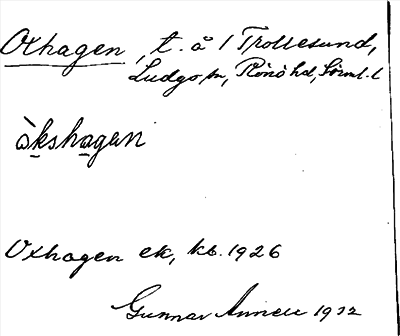 Oxhagen, t. å 1 Trollesund,
Ludgo sn, Rönö hd, Sörml. l
åkshagen
Oxhagen ek, kb. 1926
Gunnar 1932